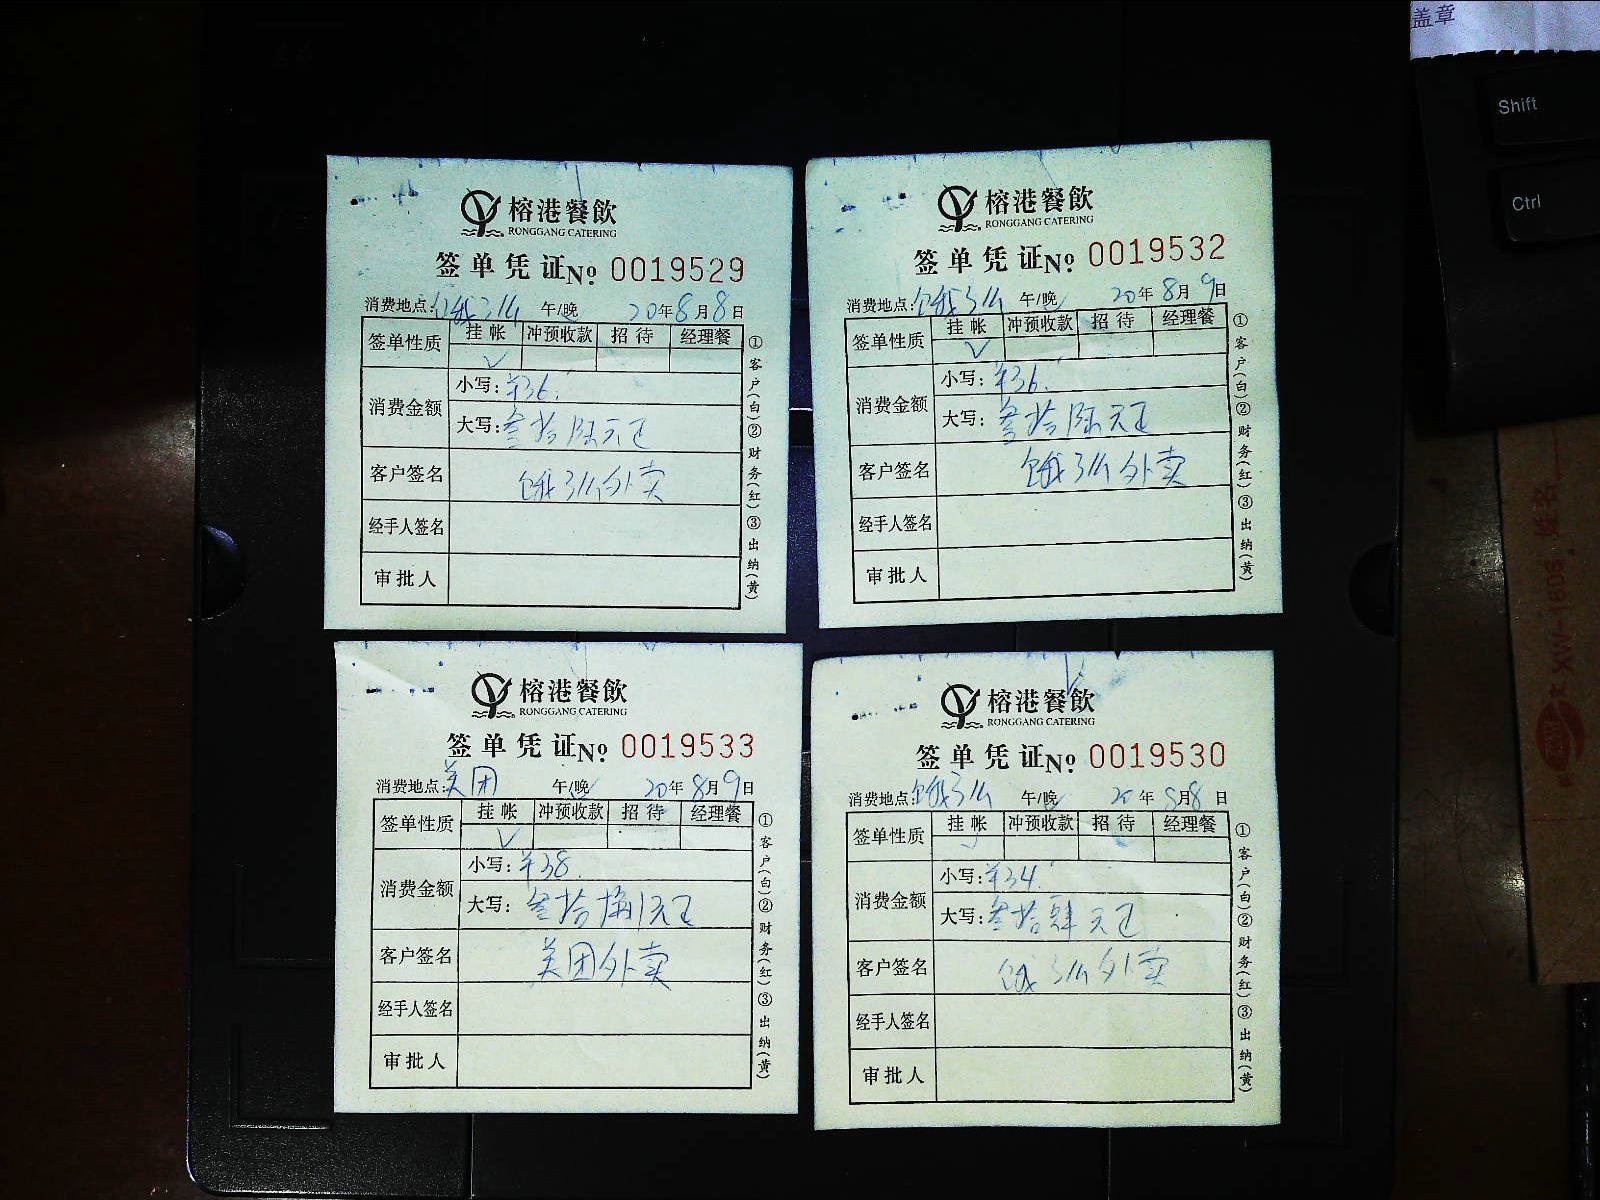 盖章
Shift
Ctrl
榕港餐飲
RONGGANG CATERING
签单凭证 № 0019529
消费地点: 饿了么 午/晚 20年8月8日
签单性质 挂帐 冲预收款 招待 经理餐
✓
消费金额 小写: ¥36.
大写: 叁拾陆元正
客户签名 饿了么外卖
经手人签名
审批人
①客户(白)②财务(红)③出纳(黄)
榕港餐飲
RONGGANG CATERING
签单凭证 № 0019532
消费地点: 饿了么 午/晚 20年8月9日
签单性质 挂帐 冲预收款 招待 经理餐
✓
消费金额 小写: ¥36.
大写: 叁拾陆元正
客户签名 饿了么外卖
经手人签名
审批人
①客户(白)②财务(红)③出纳(黄)
榕港餐飲
RONGGANG CATERING
签单凭证 № 0019533
消费地点: 美团 午/晚 20年8月9日
签单性质 挂帐 冲预收款 招待 经理餐
✓
消费金额 小写: ¥38.
大写: 叁拾捌元正
客户签名 美团外卖
经手人签名
审批人
①客户(白)②财务(红)③出纳(黄)
榕港餐飲
RONGGANG CATERING
签单凭证 № 0019530
消费地点: 饿了么 午/晚 20年8月8日
签单性质 挂帐 冲预收款 招待 经理餐
✓
消费金额 小写: ¥34.
大写: 叁拾肆元正
客户签名 饿了么外卖
经手人签名
审批人
①客户(白)②财务(红)③出纳(黄)
XW-1805
姓名